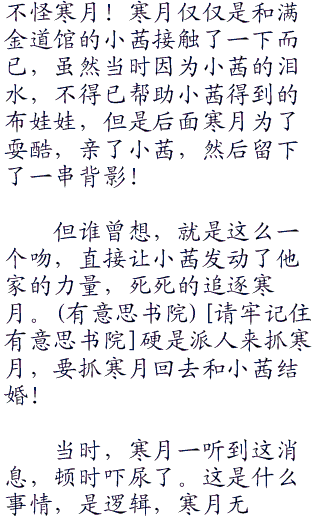 不怪寒月！寒月仅仅是和满
金道馆的小茜接触了一下而
已，虽然当时因为小茜的泪
水，不得已帮助小茜得到的
布娃娃，但是后面寒月为了
耍酷，亲了小茜，然后留下
了一串背影！
但谁曾想，就是这么一
个吻，直接让小茜发动了他
家的力量，死死的追逐寒
月。(有意思书院)[请牢记住
有意思书院]硬是派人来抓寒
月，要抓寒月回去和小茜结
婚！
当时，寒月一听到这消
息，顿时吓尿了。这是什么
事情，是逻辑，寒月无